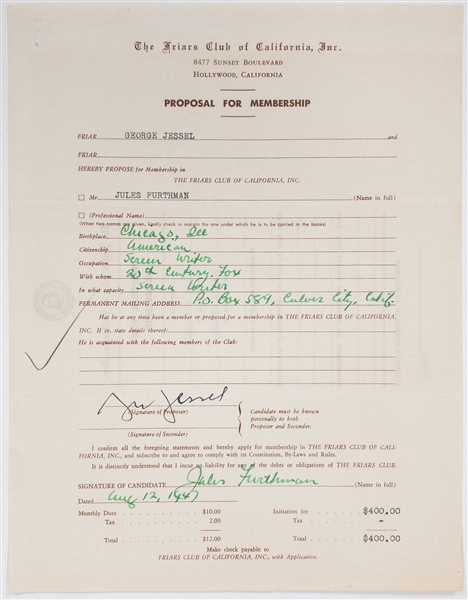 The Friars Club of California, Inc.
8477 Sunset Boulevard
Hollywood, California
PROPOSAL FOR MEMBERSHIP
Friar GEORGE JESSEL and
Friar
Hereby Propose for Membership in
THE FRIARS CLUB OF CALIFORNIA, INC.
Mr JULES FURTHMAN (Name in full)
(Professional Name)
(When two names are given, kindly check in margin the one under which he is to be carried in the books)
Birthplace Chicago, Ill
Citizenship American
Occupation Screen Writer
With whom 20th Century, Fox
In what capacity Screen Writer
PERMANENT MAILING ADDRESS P.O. Box 589, Culver City, Calif.
Has he at any time been a member or proposed for a membership in THE FRIARS CLUB OF CALIFORNIA,
INC. If so, state details thereof:
He is acquainted with the following members of the Club:
Jessel
(Signature of Proposer)
(Signature of Seconder)
Candidate must be known
personally to both
Proposer and Seconder.
I confirm all the foregoing statements and hereby apply for membership in THE FRIARS CLUB OF CALI-
FORNIA, INC., and subscribe to and agree to comply with its Constitution, By-Laws and Rules.
It is distinctly understood that I incur no liability for any of the debts or obligations of THE FRIARS CLUB.
SIGNATURE OF CANDIDATE Jules Furthman (Name in full)
Dated Aug 12, 1947
Monthly Dues $10.00 Initiation fee: $400.00
Tax 2.00 Tax -
Total $12.00 Total $400.00
Make check payable to
FRIARS CLUB OF CALIFORNIA, INC., with Application.